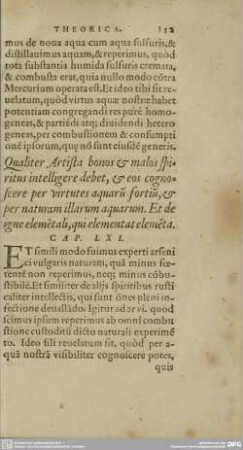 THEORICA.
mus de noua aqua cum aqua sulfuris,&
distillauimus aquam,& reperimus, quòd
tota substantia humida sulfuris cremata,
& combusta erat, quia nullo modo cõtra
Mercurium operata est. Et ideo tibi sit re
uelatum, quòd virtus aquæ nostræ habet
potentiam congregandi res purè homo-
geneas, & partiẽdi atq; diuidendi hetero
geneas, per combustionem & consumpti
onẽ ipsorum, que nõ sunt eiusdẽ generis.
Qualiter Artista bonos & malos spi
ritus intelligere debet, & eos cogno-
scere per virtutes aquarũ fortiũ, &
per naturam illarum aquarum. Et de
igne elemẽtali, qui elementat elemẽta.
CAP. LXI.
ET simili modo fuimus experti arseni
ci vulgaris naturam, quã minus
non reperimus, neq; minus cõbu-
stibilẽ. Et similiter de alijs spiritibus rusti
caliter intellectis, qui sunt õnes pleni in-
fectione Igitur ad quod
scimus ipsum reperimus ab omni combu
stione custoditũ dicto naturali experimẽ
to. Ideo fili reuelatum sit, quòd per a-
quã nostrã visibiliter cognoscere potes,
quis